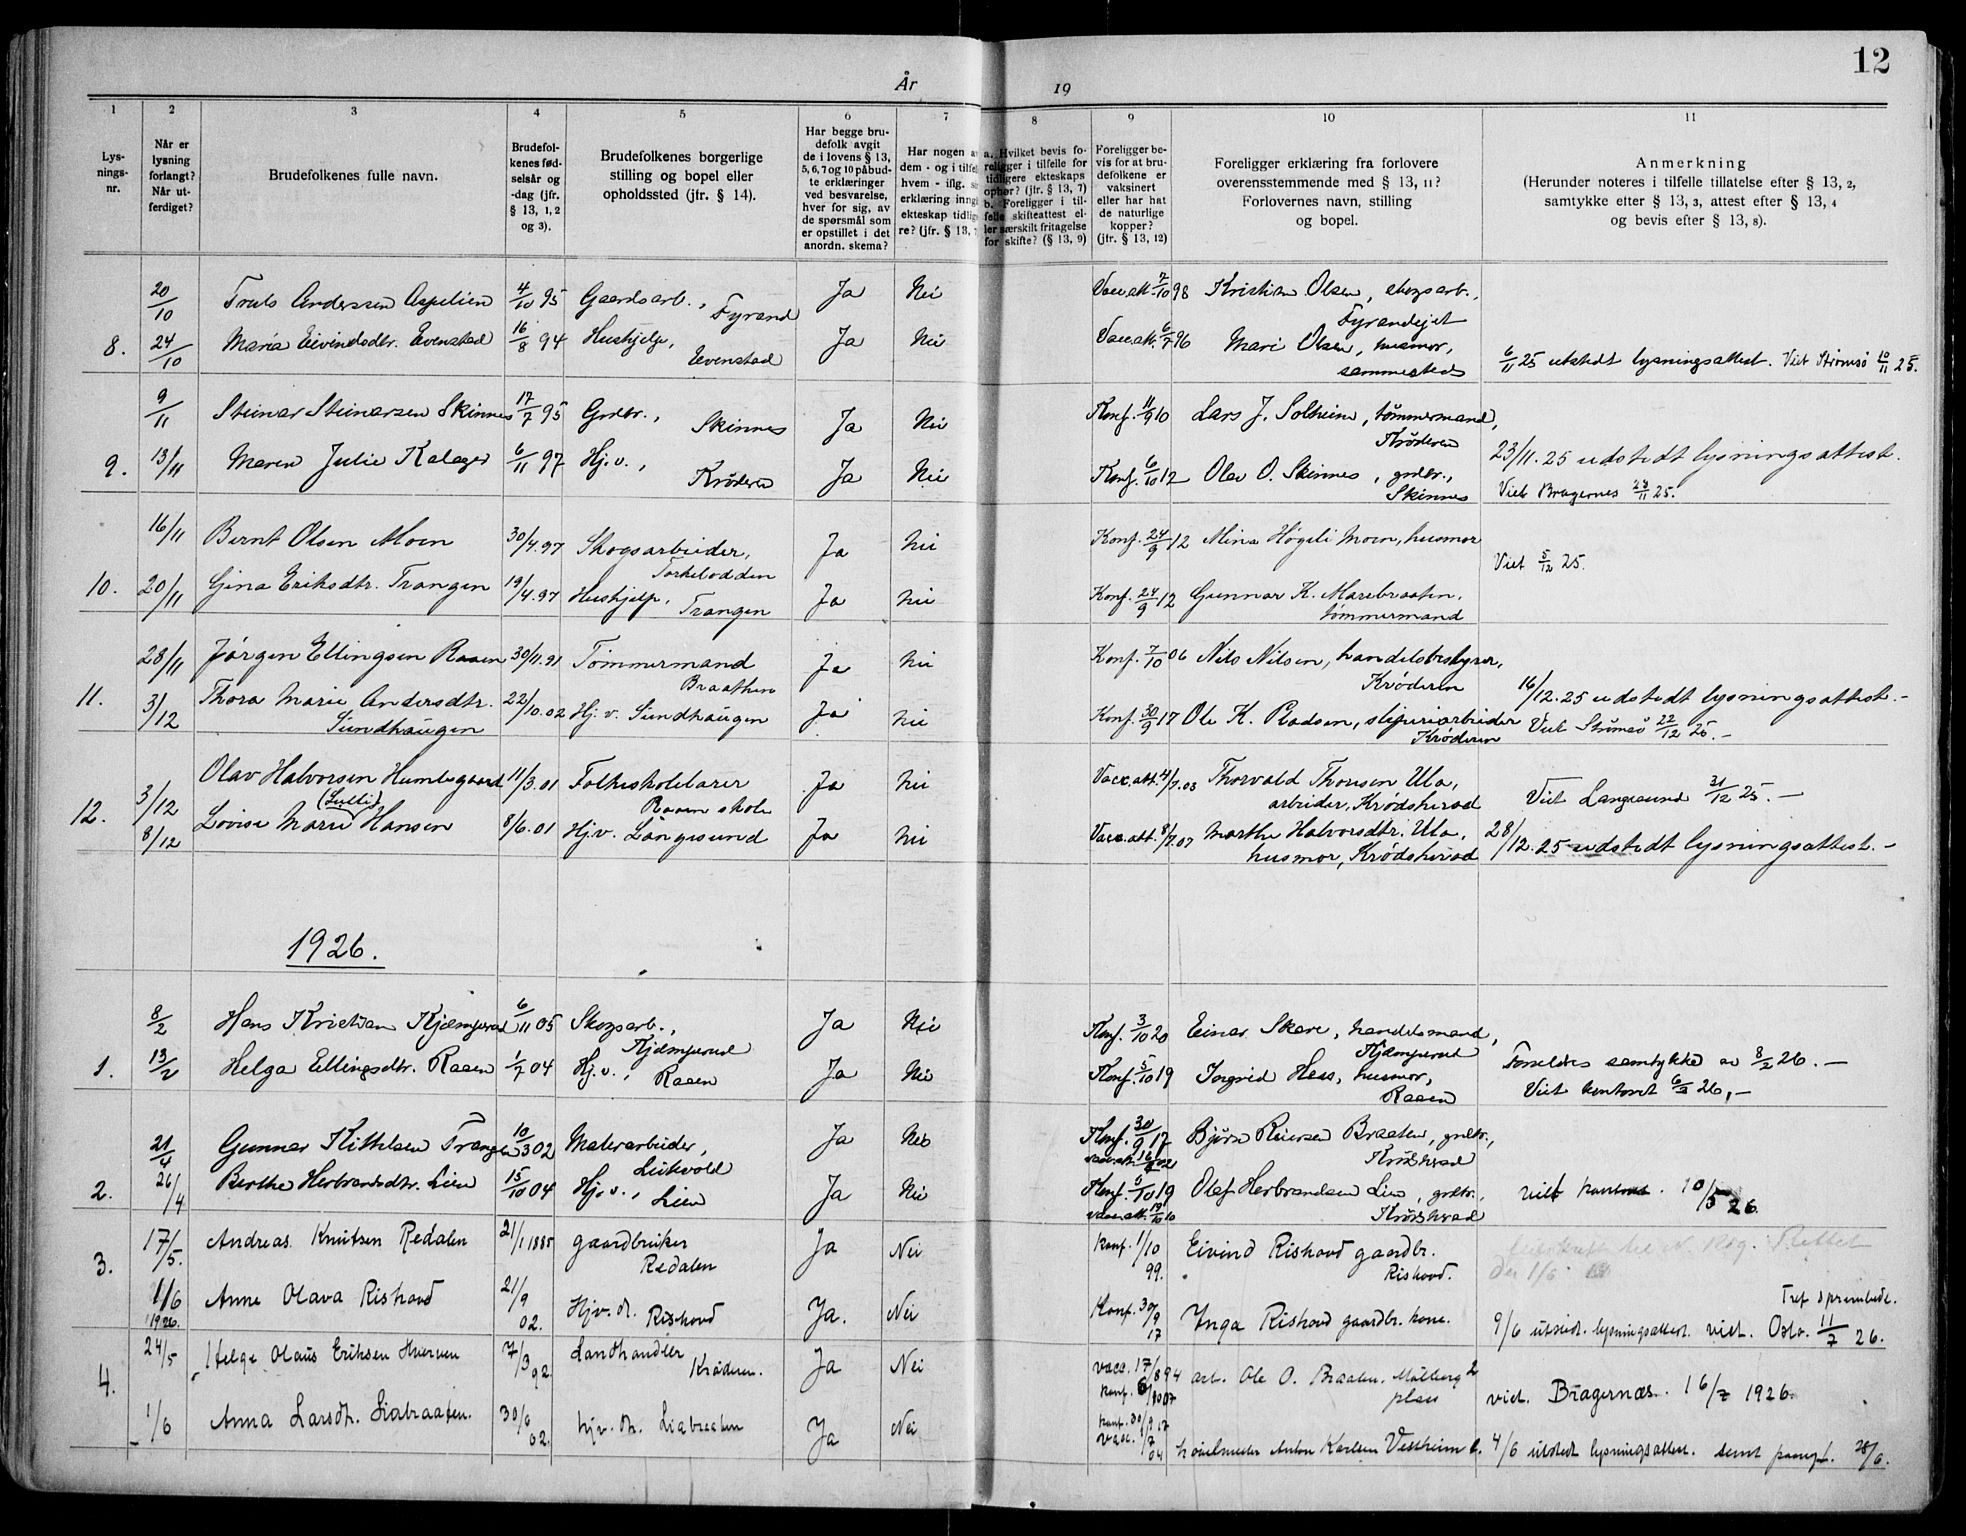 År 19 12
1 2 3 4 5 6 7 8 9 10 11
Lys-
nings-
nr.
Når er
lysning
forlangt?
Når ut-
ferdiget?
Brudefolkenes fulle navn.
Brudefol-
kenes fød-
selsår og
-dag (jfr.
§ 13, 1, 2
og 3).
Brudefolkenes borgerlige
stilling og bopel eller
opholdssted (jfr. § 14).
Har begge bru-
defolk avgit
de i lovens § 13,
5, 6, 7 og 10 påbud-
te erklæringer
ved besvarelse,
hver for sig, av
de spørsmål som
er opstillet i det
anordn. skema?
Har nogen av
dem - og i tilfel
hvem - iflg. s
erklæring inng
ekteskap tidlig
re? (jfr. § 13,
a. Hvilket bevis fo-
religger i tilfelle for
tidligere ekteskaps
ophør? (jfr. § 13, 7)
b. Foreligger i til-
felle skifteattest el-
ler særskilt fritagelse
for skifte? (§ 13, 9)
Foreligger be-
vis for at bru-
defolkene er
vaksinert
eller har hat
de naturlige
kopper?
(jfr. § 13, 12)
Foreligger erklæring fra forlovere
overensstemmende med § 13, 11?
Forlovernes navn, stilling
og bopel.
Anmerkning
(Herunder noteres i tilfelle tillatelse efter § 13, 2,
samtykke efter § 13, 3, attest efter § 13, 4
og bevis efter § 13, 8).
20/10 Truls Andersen Aspelien 4/10 95 Gaardsarb., Fyrand Ja Nei Vacc.att. 7/10 98 Kristian Olsen, skogsarb., Fyrandejet
8. 24/10 Maria Eivindsdtr. Evenstad 16/8 94 Hushjelp, Evenstad Ja Nei Vacc.att. 6/7 96 Mari Olsen, husmor, sammesteds 6/11 25 utstedt lysningsattest. Viet Strømsø 10/11 25.
9/11 Steinar Steinarsen Skinnes 17/7 95 Grdbr., Skinnes Ja Nei Konf. 11/9 10 Lars J. Solheim, tømmermand, Krøderen
9. 13/11 Maren Julie Kalager 6/11 97 Hj.v., Krøderen Ja Nei Konf. 6/10 12 Olav O. Skinnes, grdbr., Skinnes 23/11.25 udstedt lysningsattest.
Viet Bragernes 28/11 25.
16/11 Bernt Olsen Moen 30/4.97 Skogsarbeider, Torkelodden Ja Nei Konf. 24/9 12 Mina Høgeli Moen, husmor Viet 5/12 25.
10. 20/11 Gina Eriksdtr. Trangen 19/4.97 Hushjelp, Trangen Ja Nei Konf. 24/9 12 Gunnar K. Marebraaten, tømmermand
28/11 Jørgen Ellingsen Raaen 30/11.91 Tømmermand Braathen Ja Nei Konf. 7/10 06 Nils Nilsen, handelsbestyrer, Krøderen 16/12.25 udstedt lysningsattest.-
11. 3/12 Thora Marie Andersdtr. Sundhaugen 22/10.02 Hj.v. Sundhaugen Ja Nei Konf. 30/9 17 Ole K. Rudsen, sliperiarbeider Krøderen Viet Strømsø 22/12 25.-
3/12 Olav Halvorsen Humlegaard 11/3.01 Folkeskolelærer Raaen skole Ja Nei Vacc.att. 4/7.03 Thorvald Thonsen Ula, arbeider, Krødsherad Viet Langesund 31/12 25.-
12. 8/12 Lovise Marie (Lulli) Hansen 8/6.01 Hj.v. Langesund Ja Nei Vacc.att. 8/7.07 Marthe Halvorsdtr. Ula, husmor, Krødsherad 28/12.25 udstedt lysningsattest.-
1926.
8/2 Hans Kristian Kjæmperud 6/11 05 Skogsarb., Kjæmperud Ja Nei Konf. 3/10 20 Einar Skare, handelsmand, Kjæmperud
1. 13/2 Helga Ellingsdtr. Raaen 1/7 04 Hj.v., Raaen Ja Nei Konf. 5/10 19 Ingrid Hess, husmor, Raaen Foreldres samtykke av 8/2 26.-
Viet kontoret 6/3 26,-
21/4 Gunnar Kittelsen Trangen 10/3 02 Malerarbeider, Ja Nei Konf. 30/9 17 Bjørn Reiersen Braaten, grdbr., Krødsherad
2. 26/4 Berthe Herbrandsdtr. Lien 15/10 04 Hj.v., Lien Ja Nei Konf. 5/10 19 Olaf Herbrandsen Lien, grdbr., Krødsherad viet kontoret. 10/5 26.
3. 17/5. Andreas Knutsen Redalen 21/1 1885 gaardbruker Redalen Ja Nei Konf. 1/10 99. Eivind Rishovd gaardbr. Rishovd.
1/6 1926. Anne Olava Rishovd 21/9 02. Hjv. dt. Rishovd Ja. Nei Konf. 30/9 17 Inga Rishovd gaardbr. kone. 9/6 utstedt. lysningsattest. viet. Oslo. 11/7 26.
4. 24/5 Helge Olaus Eriksen Hverven 7/3 92. Landhandler Krøderen. Ja Nei vacc. 17/8 94 arb. Ole O. Braaten. plass viet. Bragernæs. 16/7 1926.
1/6 Anna Larsdtr. Liabraaten. 30/6 02. hjv. dt. Liabraaten Ja Nei konf. 30/9 17 vacc. 1/7 04 Anton Karlsen Vestheim 4/6 utstedt lysningsattest. 28/6.